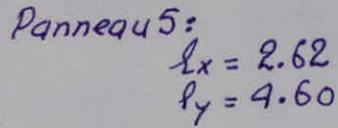 Panneau 5:
lx = 2.62
ly = 4.60